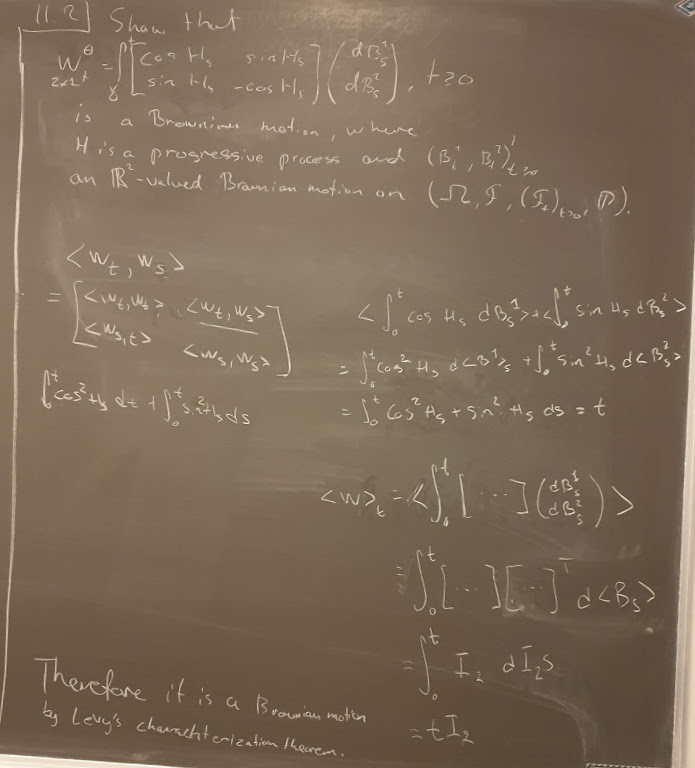 11.2] Show that
W^θ_t = ∫_0^t [cos H_s sin H_s; sin H_s -cos H_s] (dB_s^1; dB_s^2), t≥0
2x1
is a Brownian motion, where
H is a progressive process and (B_t^1, B_t^2)'_{t≥0}
an ℝ²-valued Brownian motion on (Ω, F, (F_t)_{t≥0}, ℙ).
<W_t, W_s>
= [<W_t, W_t> <W_t, W_s>
<W_s, t> <W_s, W_s>]
∫_0^t cos² H_s dt + ∫_0^t sin² H_s ds
<∫_0^t cos H_s dB_s^1> + <∫_0^t sin H_s dB_s^2>
= ∫_0^t cos² H_s d<B^1>_s + ∫_0^t sin² H_s d<B_s^2>
= ∫_0^t cos² H_s + sin² H_s ds = t
<W>_t = <∫_0^t [...] (dB_s^1; dB_s^2)>
= ∫_0^t [...][...]^T d<B_s>
= ∫_0^t I_2 dI_2s
= tI_2
Therefore it is a Brownian motion
by Levy's charachterization theorem.